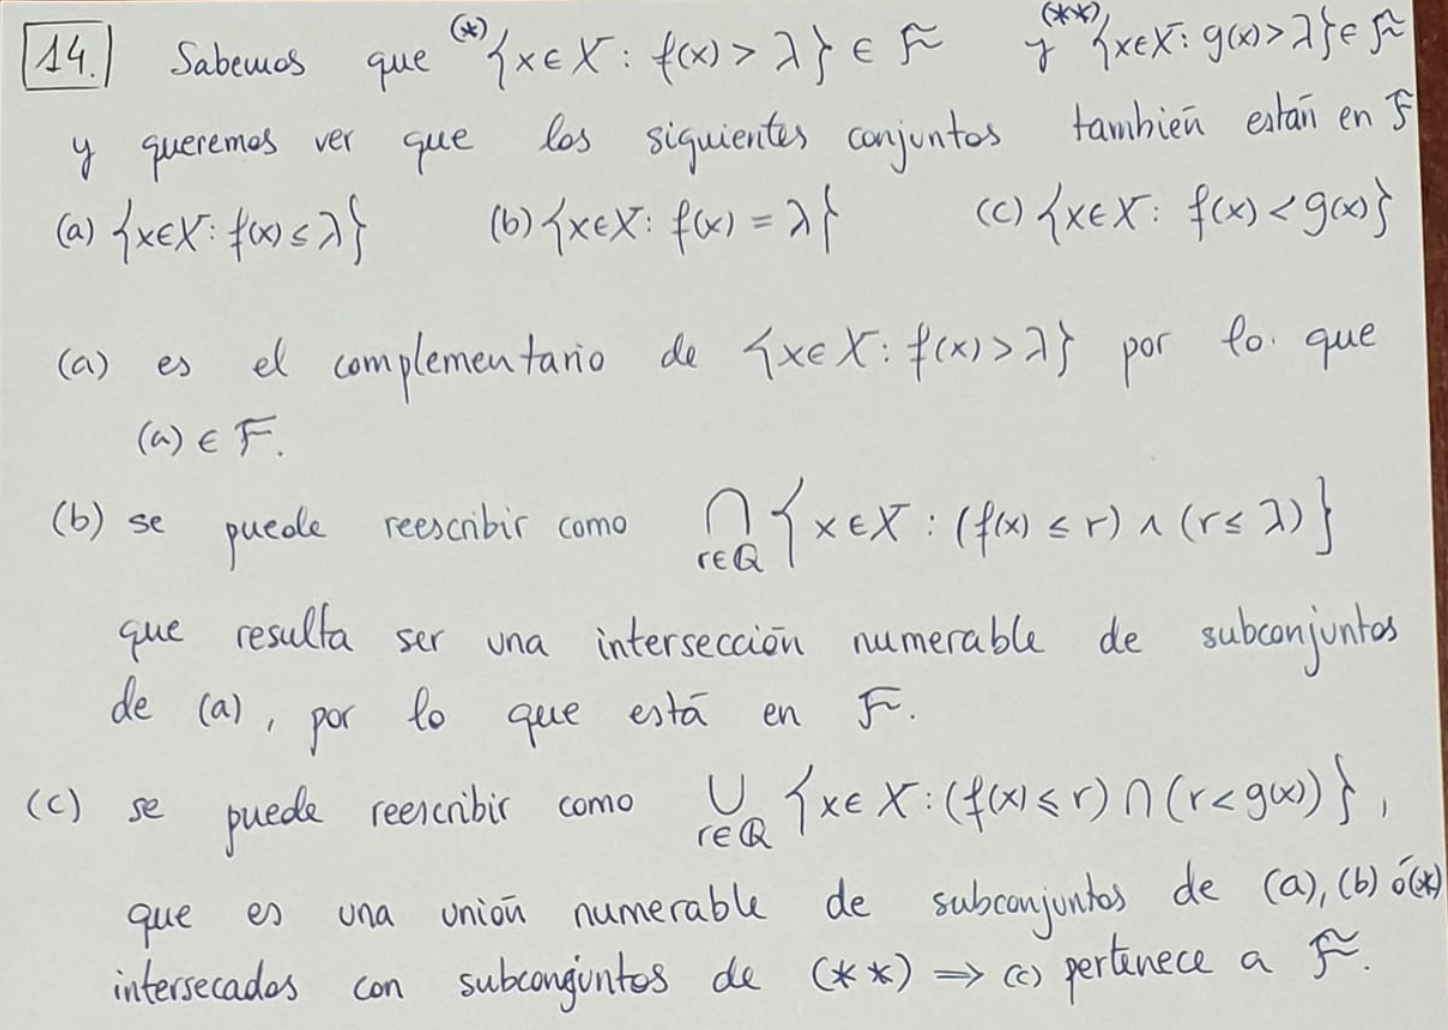 14. Sabemos que (*) {x∈X: f(x) > λ} ∈ F y (**) {x∈X: g(x) > λ} ∈ F
y queremos ver que los siguientes conjuntos también están en F
(a) {x∈X: f(x) ≤ λ} (b) {x∈X: f(x) = λ} (c) {x∈X: f(x) < g(x)}
(a) es el complementario de {x∈X: f(x) > λ} por lo que
(a) ∈ F.
(b) se puede reescribir como ⋂_{r∈Q} {x∈X: (f(x) ≤ r) ∧ (r ≤ λ)}
que resulta ser una intersección numerable de subconjuntos
de (a), por lo que está en F.
(c) se puede reescribir como ⋃_{r∈Q} {x∈X: (f(x) ≤ r) ∩ (r < g(x))},
que es una unión numerable de subconjuntos de (a), (b) ó (*)
intersecados con subconjuntos de (**) ⇒ (c) pertenece a F.